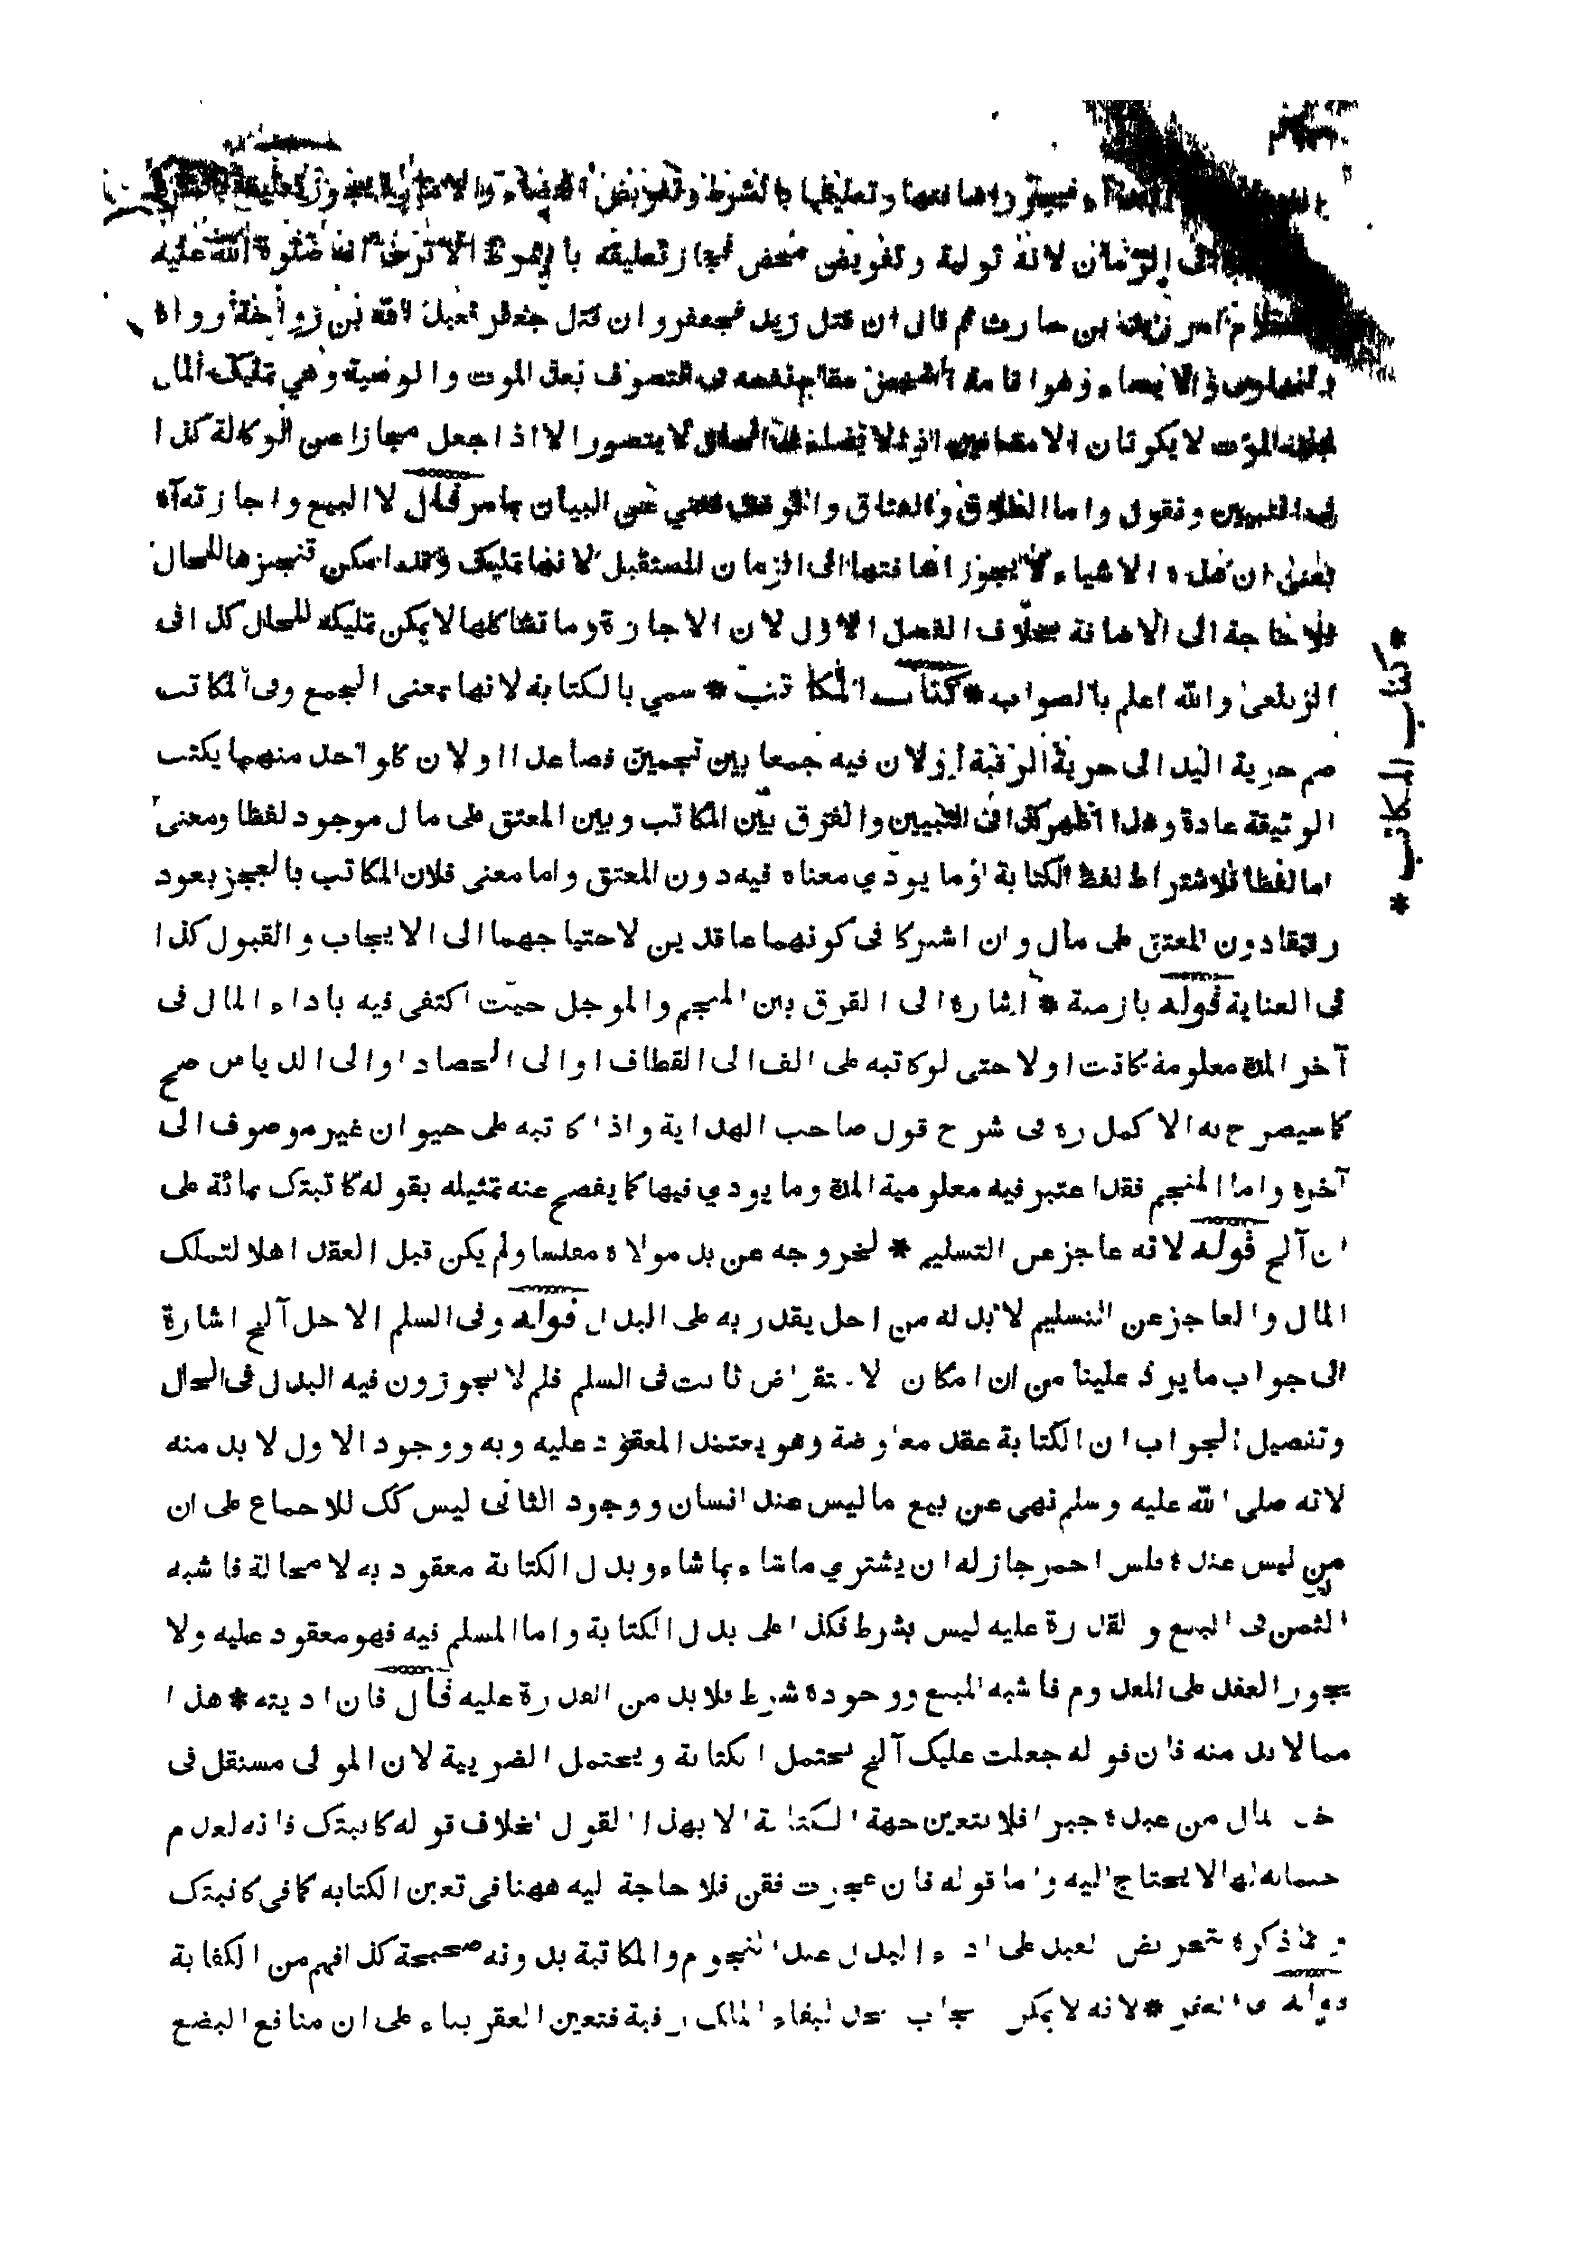 واضافتها وتعليقها بالشرط وتفويض القضاء والا
الى الزمان لانه تولية وتفويض محض فجاز تعليقه بالشرط الا ترى انه صلوة الله عليه
امر زيد بن حارث ثم قال ان قتل زيد فجعفر وان قتل جعفر فعبد الله بن رواحة رواه
وهو اقامة الشخص مقام نفسه في التصرف بعد الموت والوصية وهي تمليك المال
الموت لا يكونان الا مضافين لا يتصور الا اذا جعل مجازا عن الوكالة كذا
التبيين ونقول واما الطلاق والعتاق والوقف عن البيان بامر قال لا البيع واجازته آه
يعنى ان هذه الاشياء لا يجوز اضافتها الى الزمان المستقبل لانها تمليك وقد امكن تنجيزها للحال
فلا حاجة الى الاضافة بخلاف الفصل الاول لان الاجازة وما تشاكلها لا يمكن تمليكه للحال كذا فى
الزيلعى والله اعلم بالصواب * كتاب المكاتب * سمي بالكتابة لانها بمعنى الجمع وفى المكاتب
ضم حرية اليد الى حرية الرقبة او لان فيه جمعا بين نجمين فصاعدا او لان كلا واحد منهما يكتب
الوثيقة عادة وهذا اظهر كذا فى التبيين والفرق بين المكاتب وبين المعتق على مال موجود لفظا ومعنى
اما لفظا فلاشتراط لفظ الكتابة او ما يودي معناه فيه دون المعتق واما معنى فلان المكاتب بالعجز يعود
رقيقا دون المعتق على مال وان اشتركا فى كونهما عاقدين لاحتياجهما الى الايجاب والقبول كذا
فى العناية قوله بازمنة * اشارة الى الفرق بين المنجم والموجل حيث اكتفى فيه باداء المال فى
آخر المدة معلومة كانت اولا حتى لو كاتبه على الف الى القطاف او الى الحصاد او الى الدياس صح
كما سيصرح به الاكمل ره فى شرح قول صاحب الهداية واذا كاتبه على حيوان غير موصوف الى
آخره واما المنجم فقد اعتبر فيه معلومية المدة وما يودي فيها كما يفصح عنه تمثيله بقوله كاتبتك بمائة على
ان آلخ قوله لانه عاجز عن التسليم * لخروجه عن يد مولاه مفلسا ولم يكن قبل العقد اهلا لتملك
المال والعاجز عن التسليم لا بد له من اجل يقدر به على البدل قوله وفى السلم الاجل آلخ اشارة
الى جواب ما يرد علينا من ان امكان الاستقراض ثابت فى السلم فلم لا يجوزون فيه البدل فى الحال
وتفصيل الجواب ان الكتابة عقد معاوضة وهو يعتمد المعقود عليه وبه ووجود الاول لا بد منه
لانه صلى الله عليه وسلم نهى عن بيع ما ليس عند انسان ووجود الثانى ليس كك للاجماع على ان
من ليس عنده فلس احمر جاز له ان يشتري ما شاء بما شاء وبدل الكتابة معقود به لا محالة فاشبه
الثمن فى البيع والقدرة عليه ليس بشرط فكذا على بدل الكتابة واما المسلم فيه فهو معقود عليه ولا
يجوز العقد على المعدوم فاشبه المبيع ووجوده شرط فلا بد من القدرة عليه قال فان اديته * هذا
مما لا بد منه فان قوله جعلت عليك آلخ يحتمل الكتابة ويحتمل الضريبة لان المولى مستقل فى
المال من عبده جبرا فلا يتعين جهة الكتابة الا بهذا القول بخلاف قوله كاتبتك فانه لعدم
لها لا يحتاج اليه واما قوله فان عجزت فقن فلا حاجة اليه ههنا فى تعين الكتابه كما فى كاتبتك
ذكره تحريض العبد على اداء البدل عند النجوم والمكاتبة بدونه صحيحة كذا فهم من الكفاية
قوله العقر * لانه لا يمكن ايجاب لبقاء المالك رقبة فتعين العقر بناء على ان منافع البضع
* كتاب المكاتب *